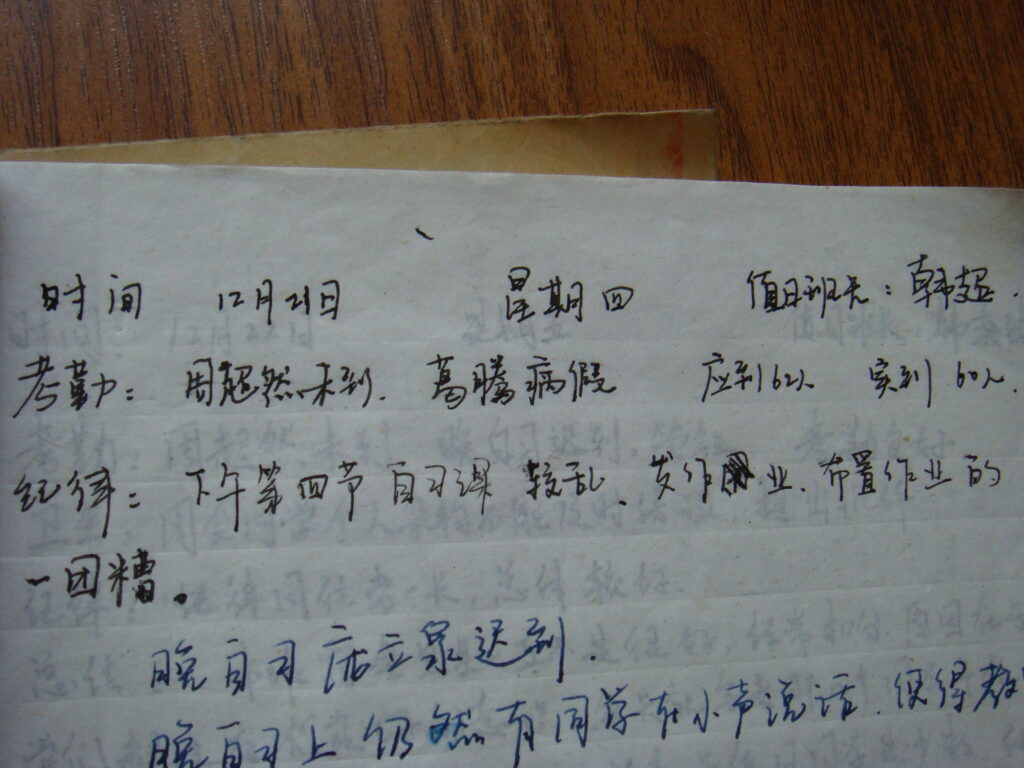 时间 12月21日 星期四 值日班长：韩超.
考勤：周超然未到. 葛腾病假 应到62人 实到60人.
纪律：下午第四节自习课较乱、发作业、布置作业的
一团糟。
晚自习 立泉迟到.
晚自习上仍然有同学在小声说话.使得教